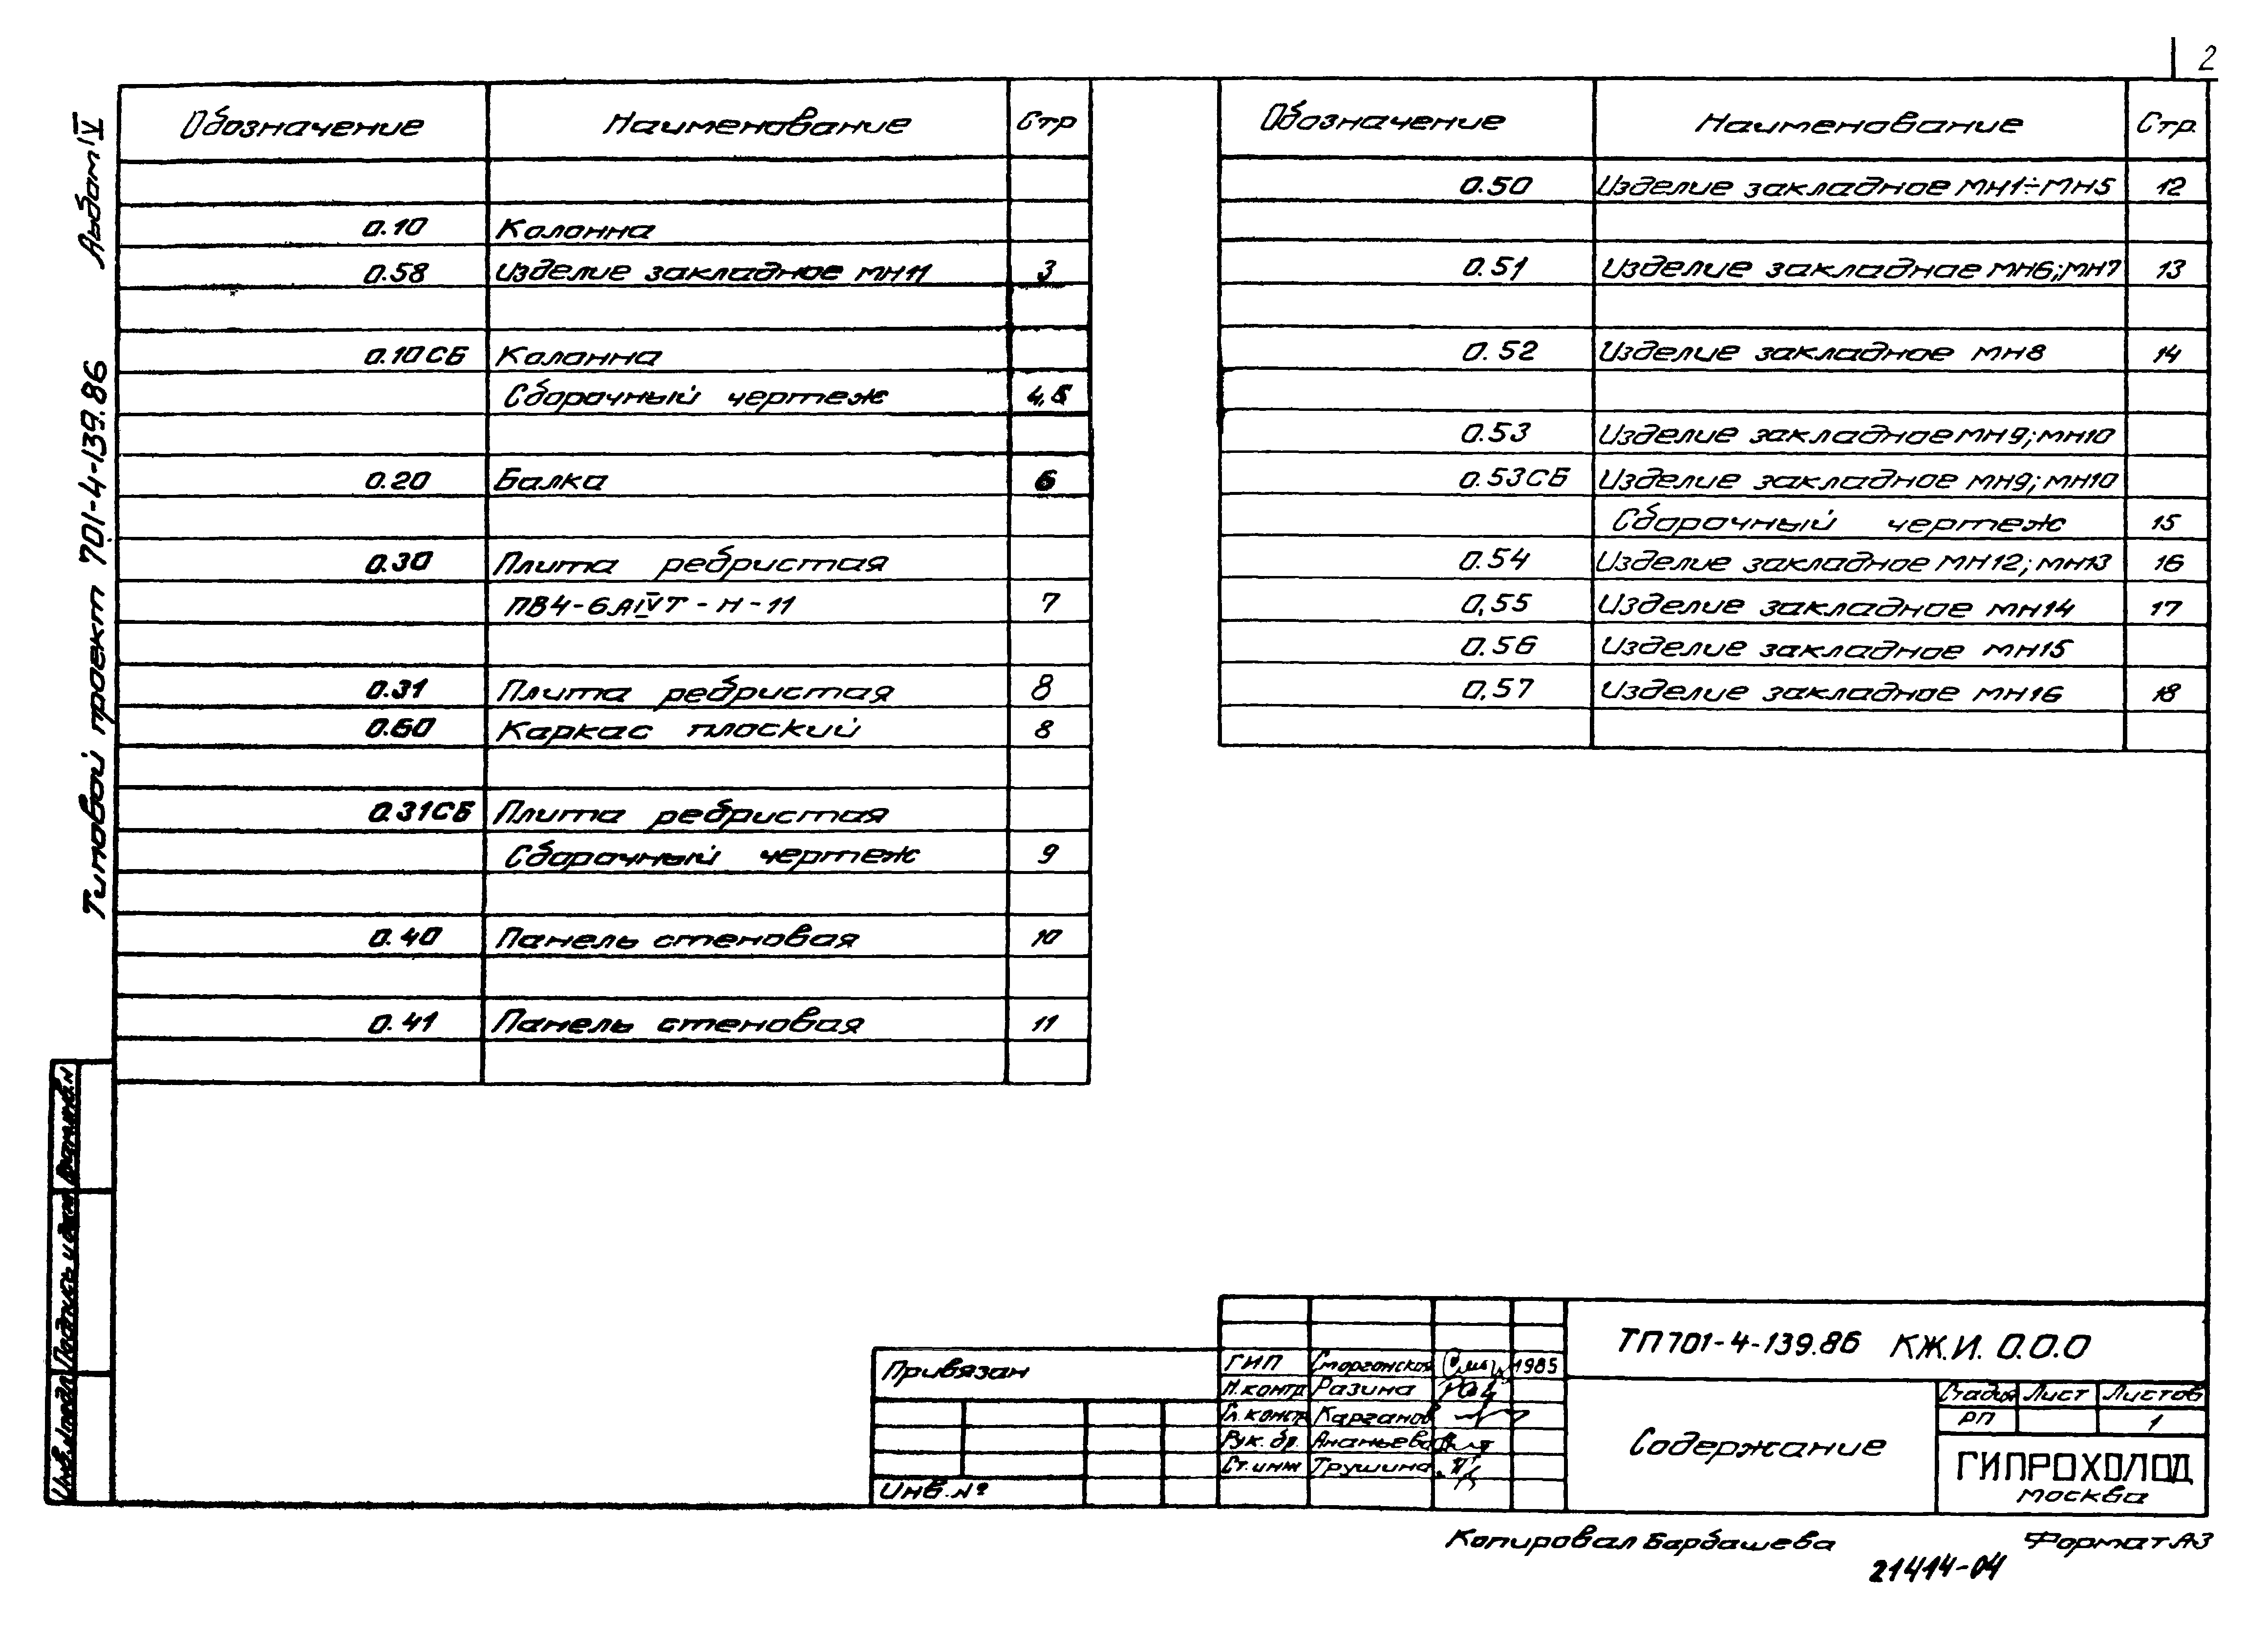 2
Альбом IV
Типовой проект 701-4-139.86
Обозначение Наименование Стр
0.10 Колонна
0.58 Изделие закладное МН11 3
0.10СБ Колонна
Сборочный чертеж 4,5
0.20 Балка 6
0.30 Плита ребристая
ПВ4-6АIVТ-Н-11 7
0.31 Плита ребристая 8
0.60 Каркас плоский 8
0.31СБ Плита ребристая
Сборочный чертеж 9
0.40 Панель стеновая 10
0.41 Панель стеновая 11
Обозначение Наименование Стр.
0.50 Изделие закладное МН1÷МН5 12
0.51 Изделие закладное МН6;МН7 13
0.52 Изделие закладное МН8 14
0.53 Изделие закладное МН9;МН10
0.53СБ Изделие закладное МН9;МН10
Сборочный чертеж 15
0.54 Изделие закладное МН12;МН13 16
0,55 Изделие закладное МН14 17
0.56 Изделие закладное МН15
0.57 Изделие закладное МН16 18
Взам.инв.N
Подпись и дата
Инв.Nподл
Привязан
Инв.№
ГИП Сморгонская 1985
Н.контр Разина
Гл.констр Карганов
Рук.бр. Ананьева
Ст.инж Трушина
ТП701-4-139.86 КЖ.И. 0.0.0
Содержание
Стадия Лист Листов
РП 1
ГИПРОХОЛОД
Москва
Копировал Барбашева Формат А3
21414-04